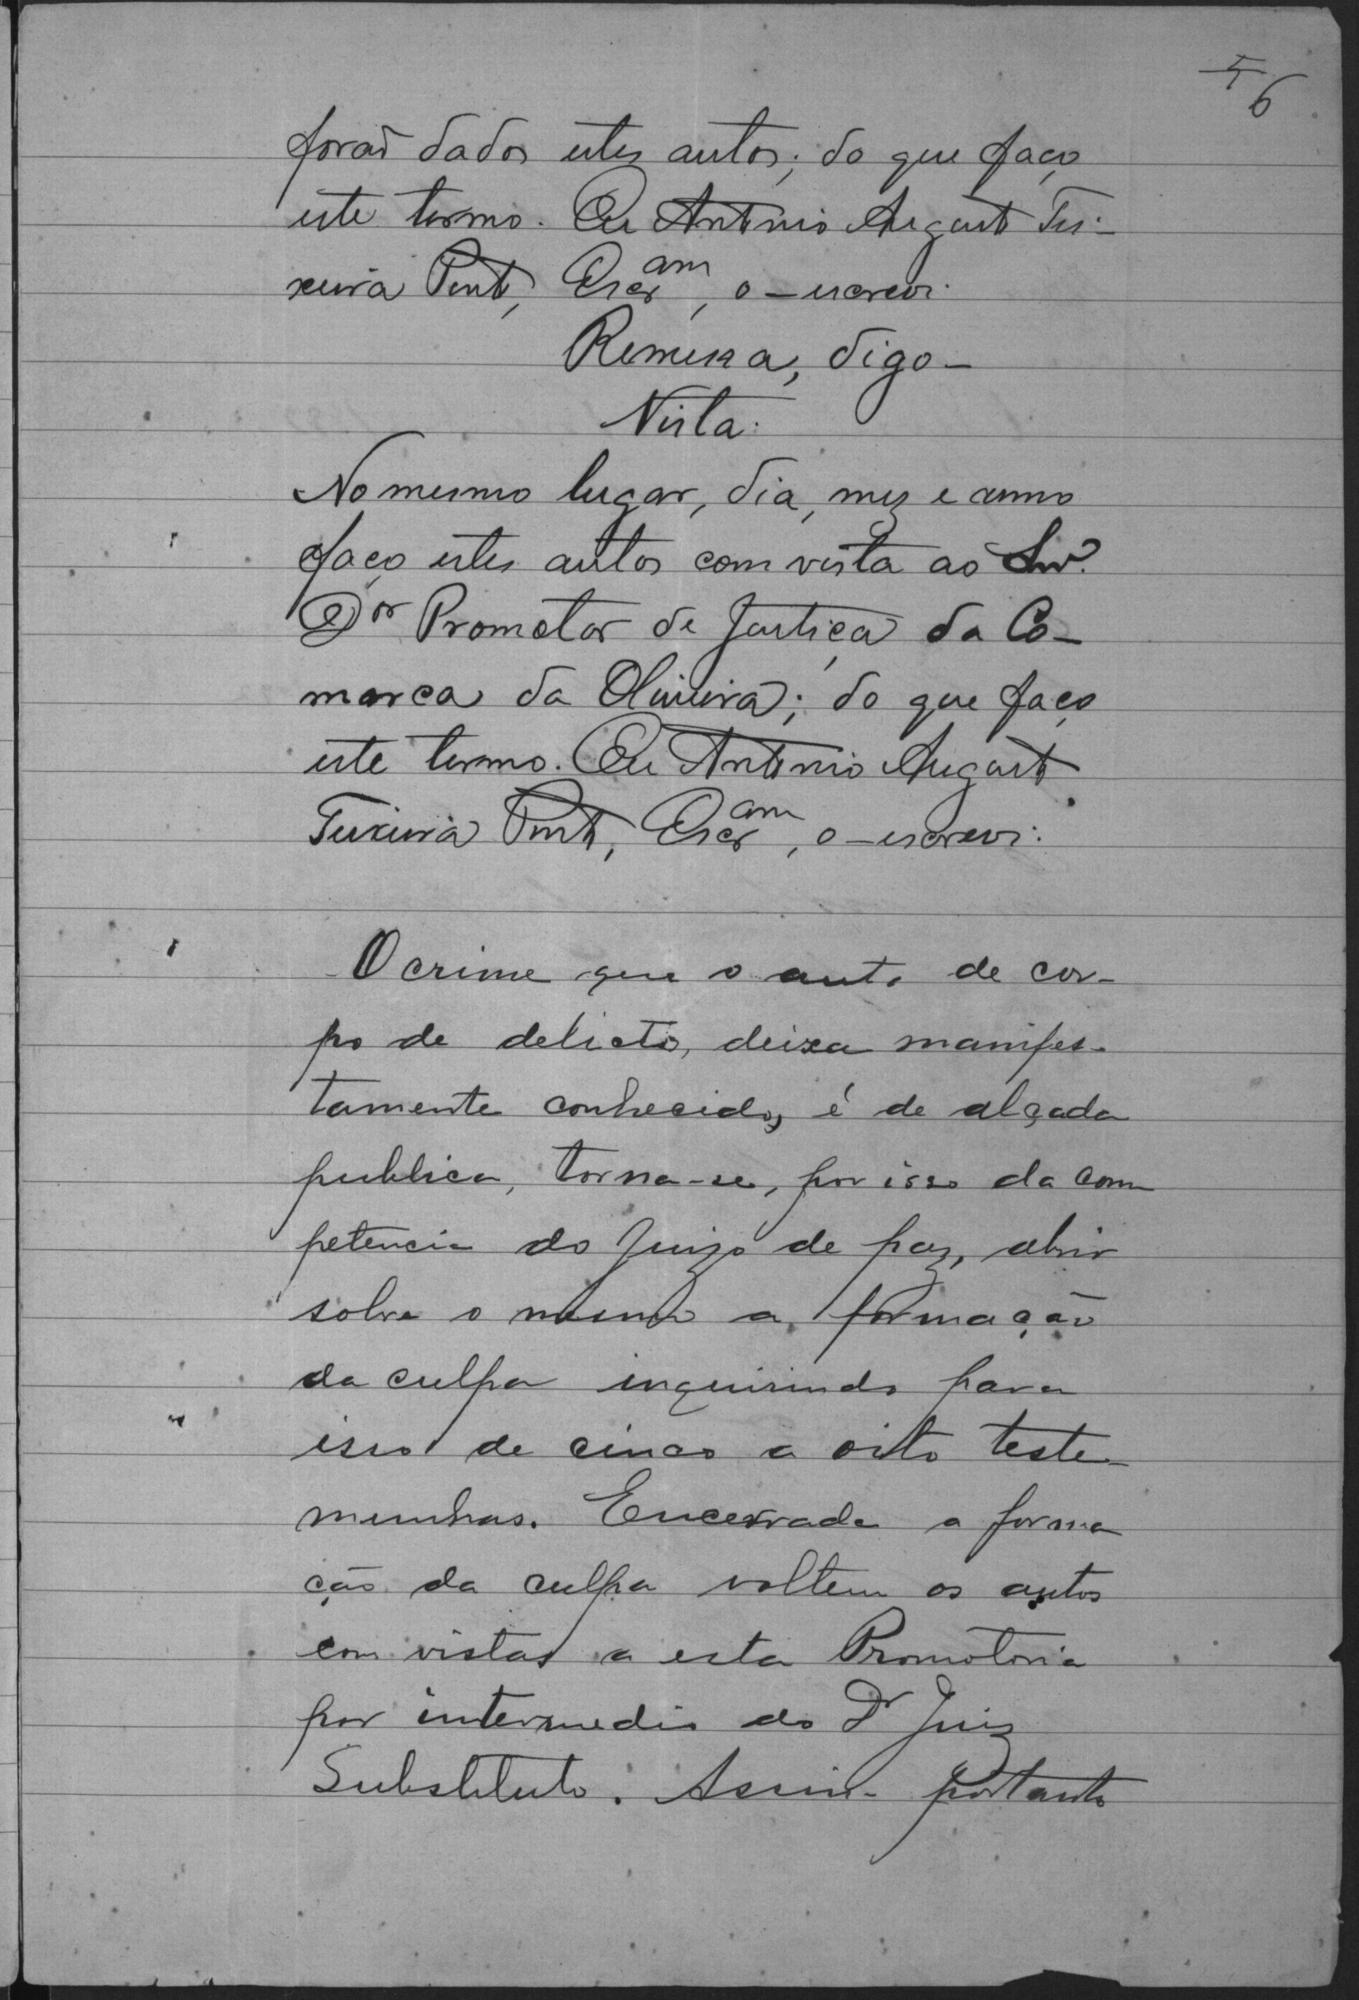 5 6
forão dados estes autos; do que faço
este termo. Eu Antonio Augusto Tei-
xeira Pinto, Escram, o-escrevi.
Remessa, digo-
Vista.
No mesmo lugar, dia, mez e anno
faço estes autos com vista ao Snr.
Dor Promotor de Justiça da Co-
marca da Oliveira; do que faço
este termo. Eu Antonio Augusto
Teixeira Pinto, Escram, o-escrevi.
O crime que o auto de cor-
po de delicto, deixa manifes-
tamente conhecido, é de alçada
publica, torna-se, por isso da com
petencia do Juizo de paz, abrir
sobre o mesmo a formação
da culpa inquirindo para
isso de cinco a oito teste-
munhas. Encerrada a forma
ção da culpa voltem os autos
com vistas a esta Promotoria
por intermedio do Dr Juiz
Substituto. Assim portanto